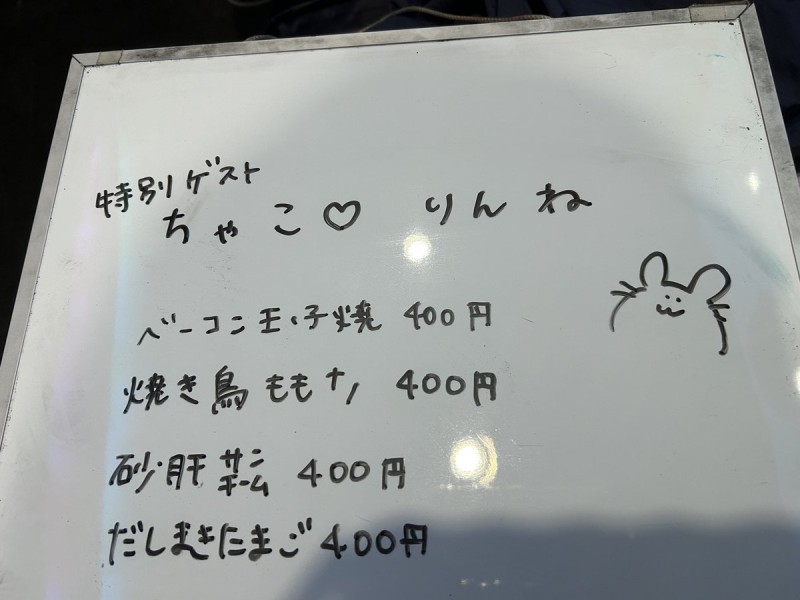 特別ゲスト
ちゃこ♡ りんね
ベーコン玉子焼 400円
焼き鳥もも 400円
砂肝 400円
だしまきたまご 400円